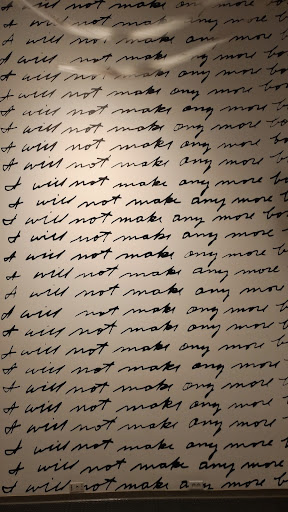 I will not make any more bo
I will not make any more bo
I will not make any more b
I will not make any more bo
I will not make any more bo
I will not make any more b
I will not make any more bo
I will not make any more b
I will not make any more bo
I will not make any more b
I will not make any more b
I will not make any more bo
I will not make any more bo
I will not make any more
I will not make any more b
I will not make any more
I will not make any more
I will not make any more b
I will not make any more b
I will not make any more b
I will not make any more b
I will not make any more b
I will not make any more b
I will not make any more b
I will not make any more b
I will not make any more b
I will not make any more bo